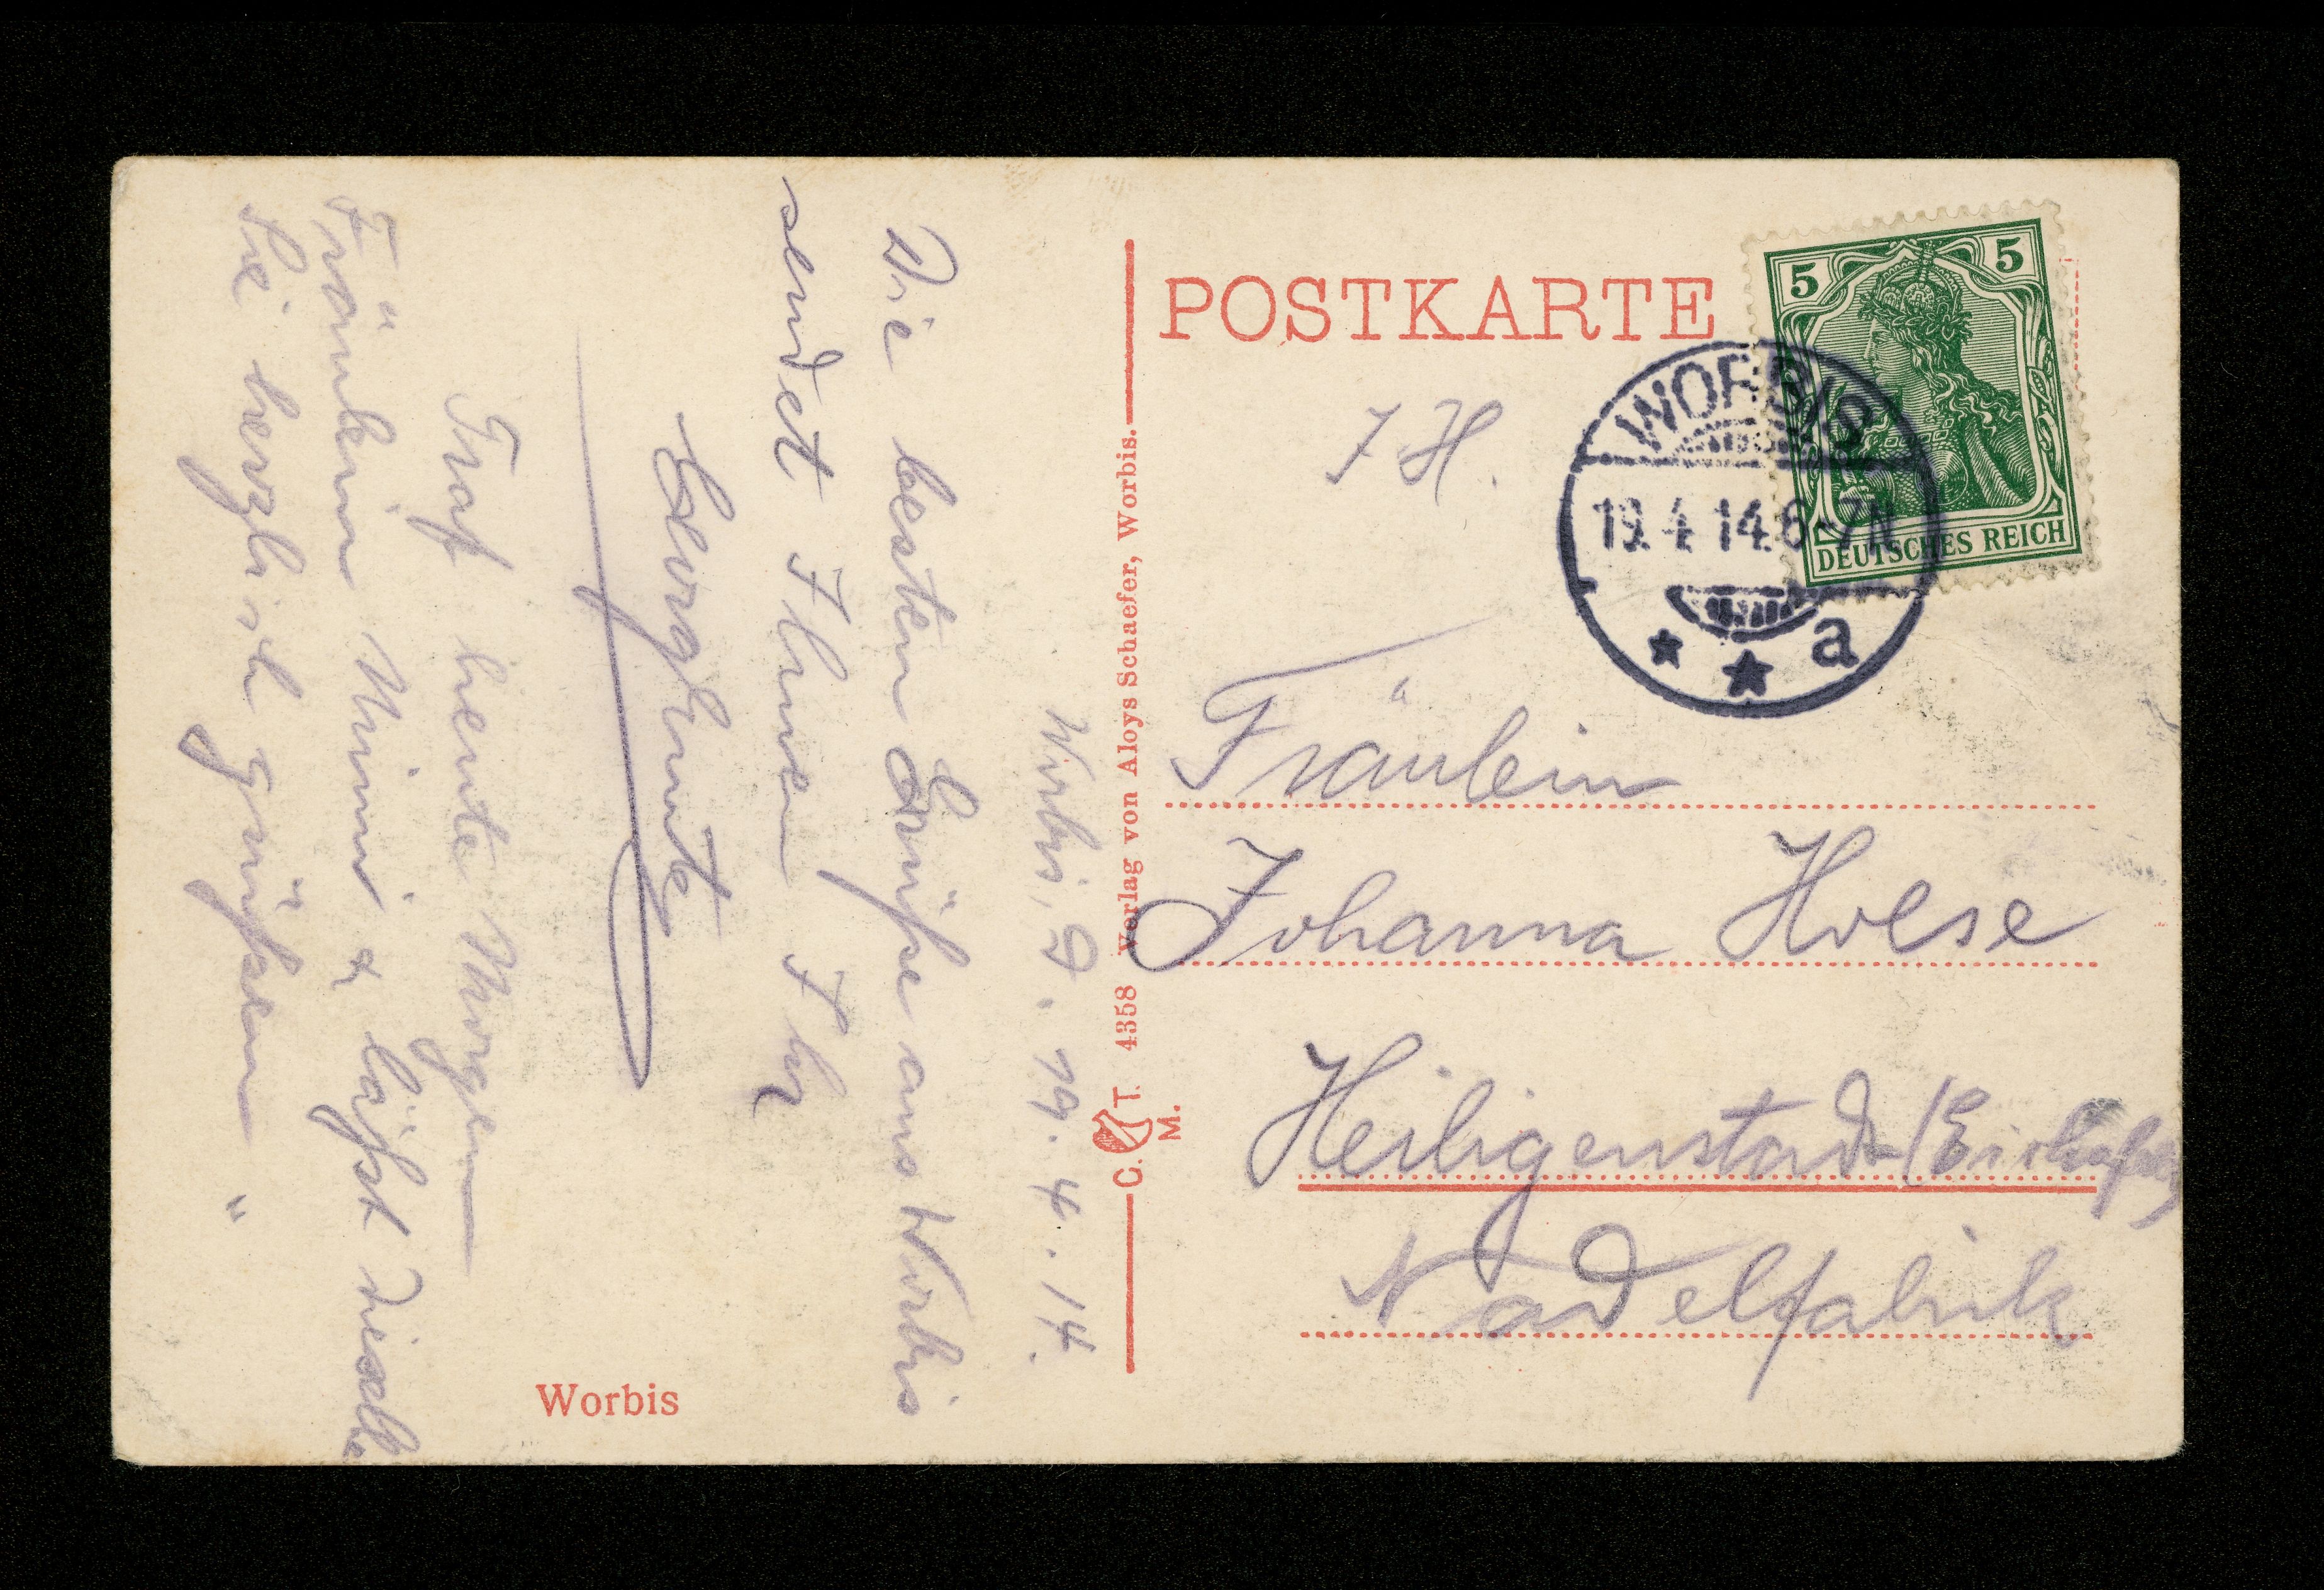 Worbis, D. 19.4.14.
Die besten Grüße aus Worbis
sendet Ihnen Ihr
Traf heute Morgen
Fräulein Mimi & läßt dieselbe
Sie herzlich grüßen "
Worbis
C. T. M. 4358 Verlag von Aloys Schaefer, Worbis.
POSTKARTE
5 5
DEUTSCHES REICH
WORBIS
19.4.14.6-7N
* * a
J H.
Fräulein
Johanna Holse
Heiligenstadt (Eichsfeld)
Nadelfabrik